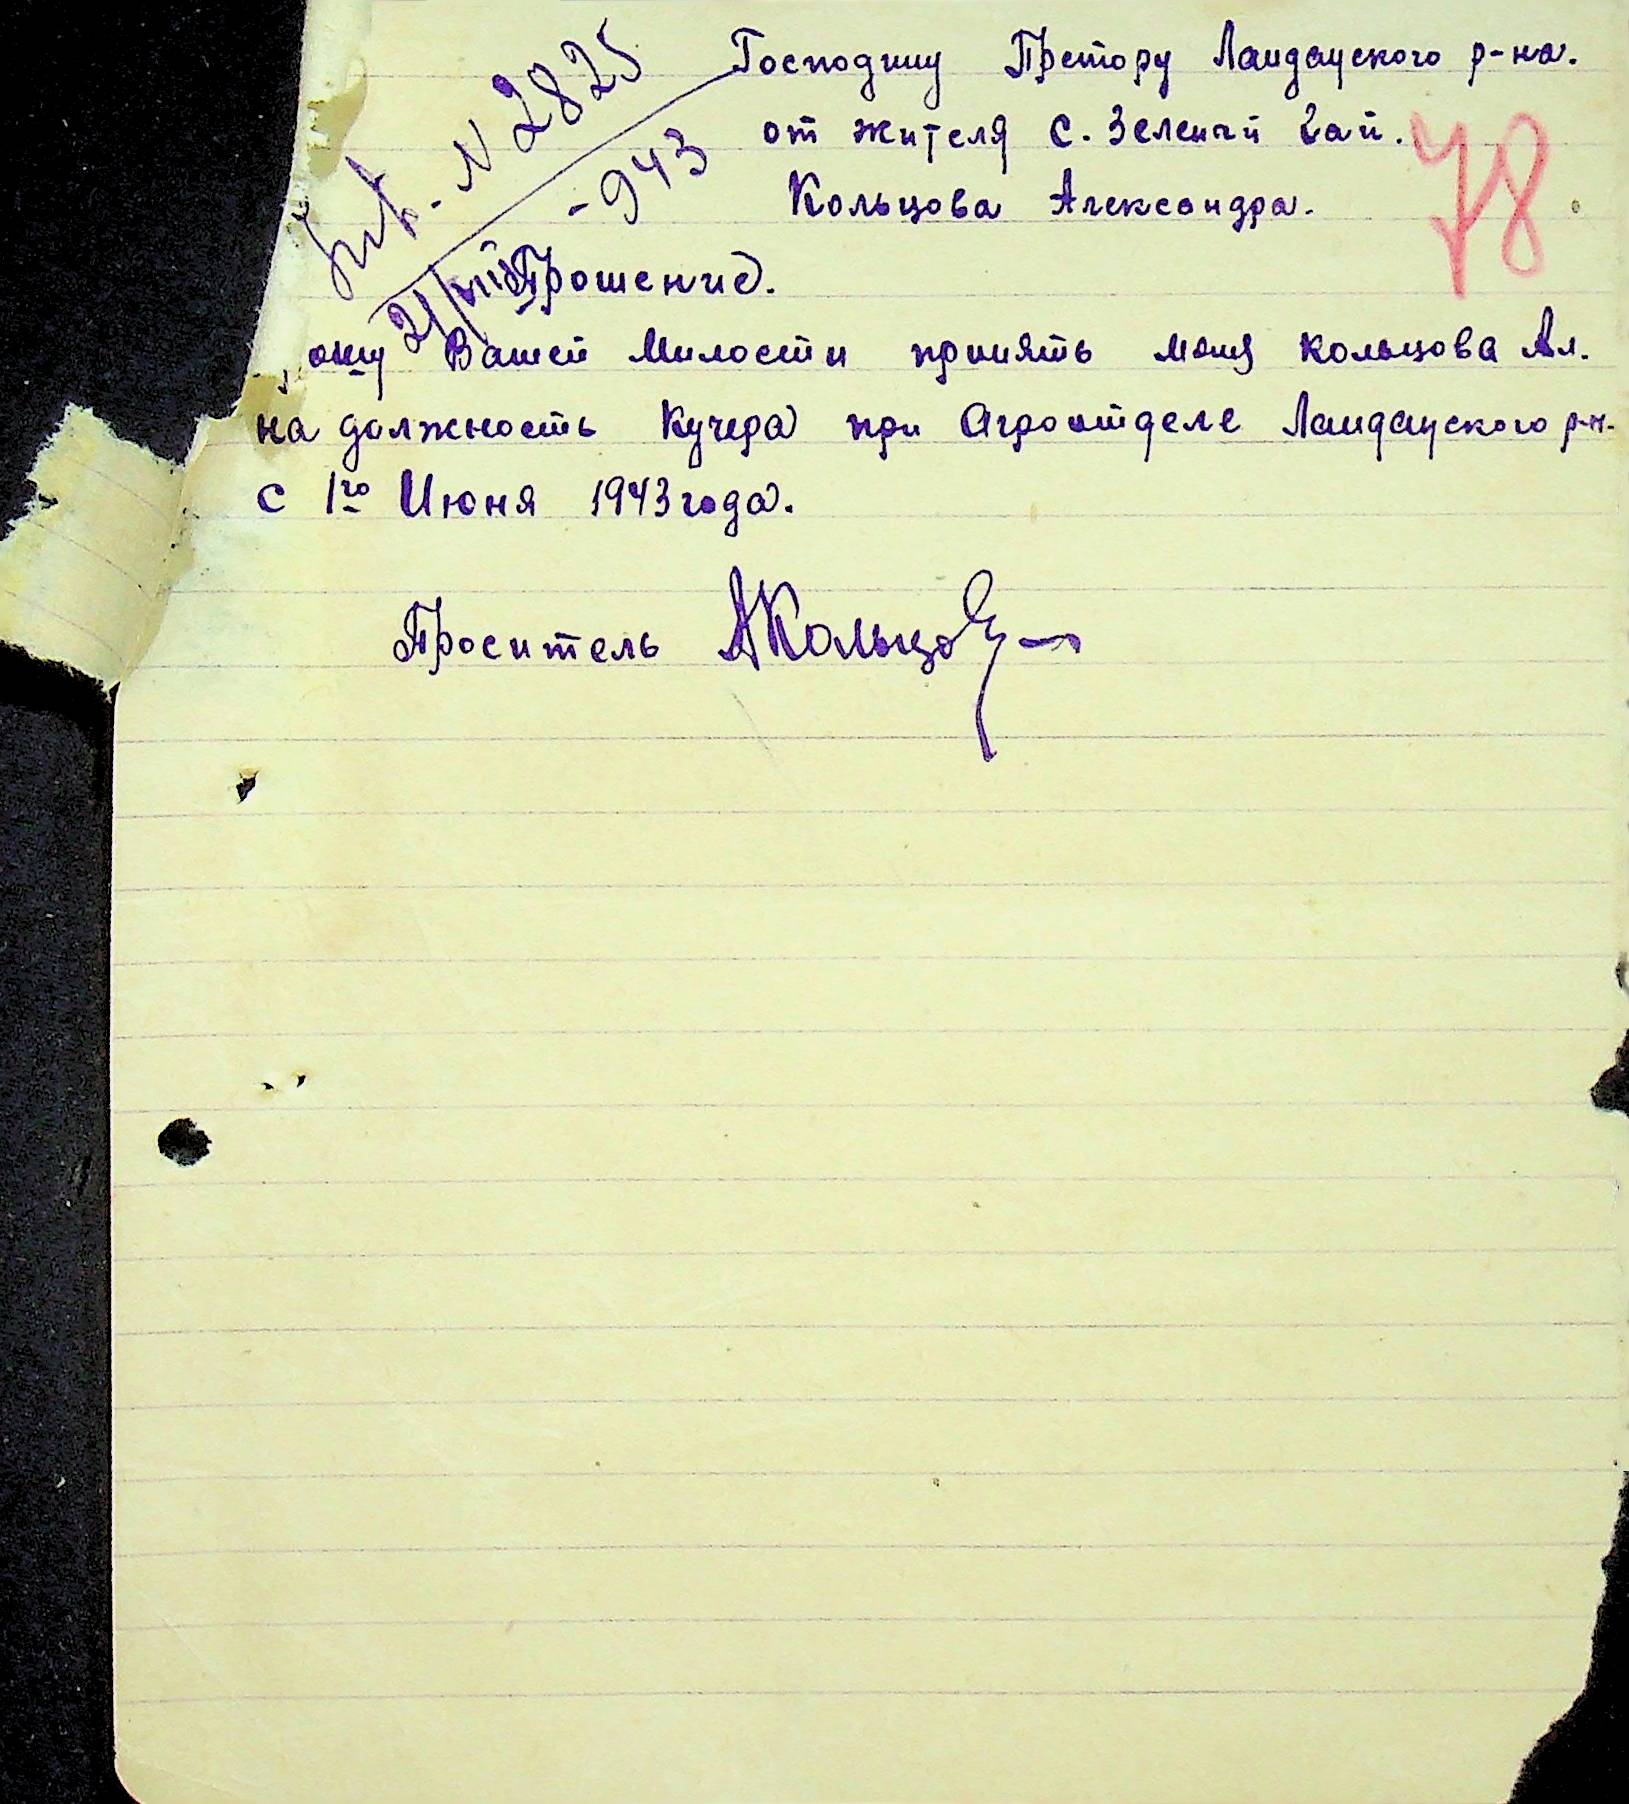 № 2825
21/VIII - 943
78
Господину Претору Ландауского р-на.
от жителя с. Зелений Гай.
Кольцова Александра.
Прошение.
ошу Вашей Милости принять меня Кольцова Ал.
на должность Кучера при Агроотделе Ландауского р-н.
с 1го Июня 1943 года.
Проситель АКольцов